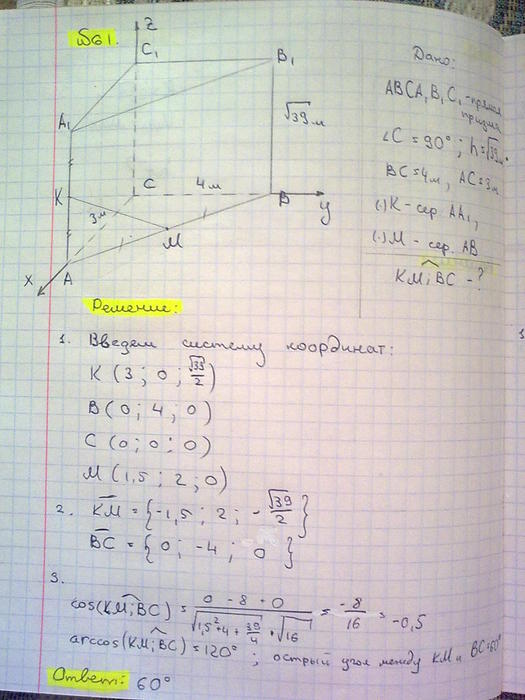 №61.
z
C₁
B₁
A₁
√39 м
K
C
4м
B
y
3м
M
x
A
Дано:
ABCA₁B₁C₁ - прямая
призма
∠C = 90°; h = √39 м
BC = 4м, AC = 3м
(·) K - сер. AA₁,
(·) M - сер. AB
KM; BC - ?
Решение:
1. Введем систему координат:
K (3; 0; √39/2)
B (0; 4; 0)
C (0; 0; 0)
M (1,5; 2; 0)
2. KM = {-1,5; 2; -√39/2}
BC = {0; -4; 0}
3.
cos(KM; BC) = (0 - 8 + 0)/(√(1,5² + 4 + 39/4) · √16) = -8/16 = -0,5
arccos(KM; BC) = 120°; острый угол между KM и BC = 60°
Ответ: 60°